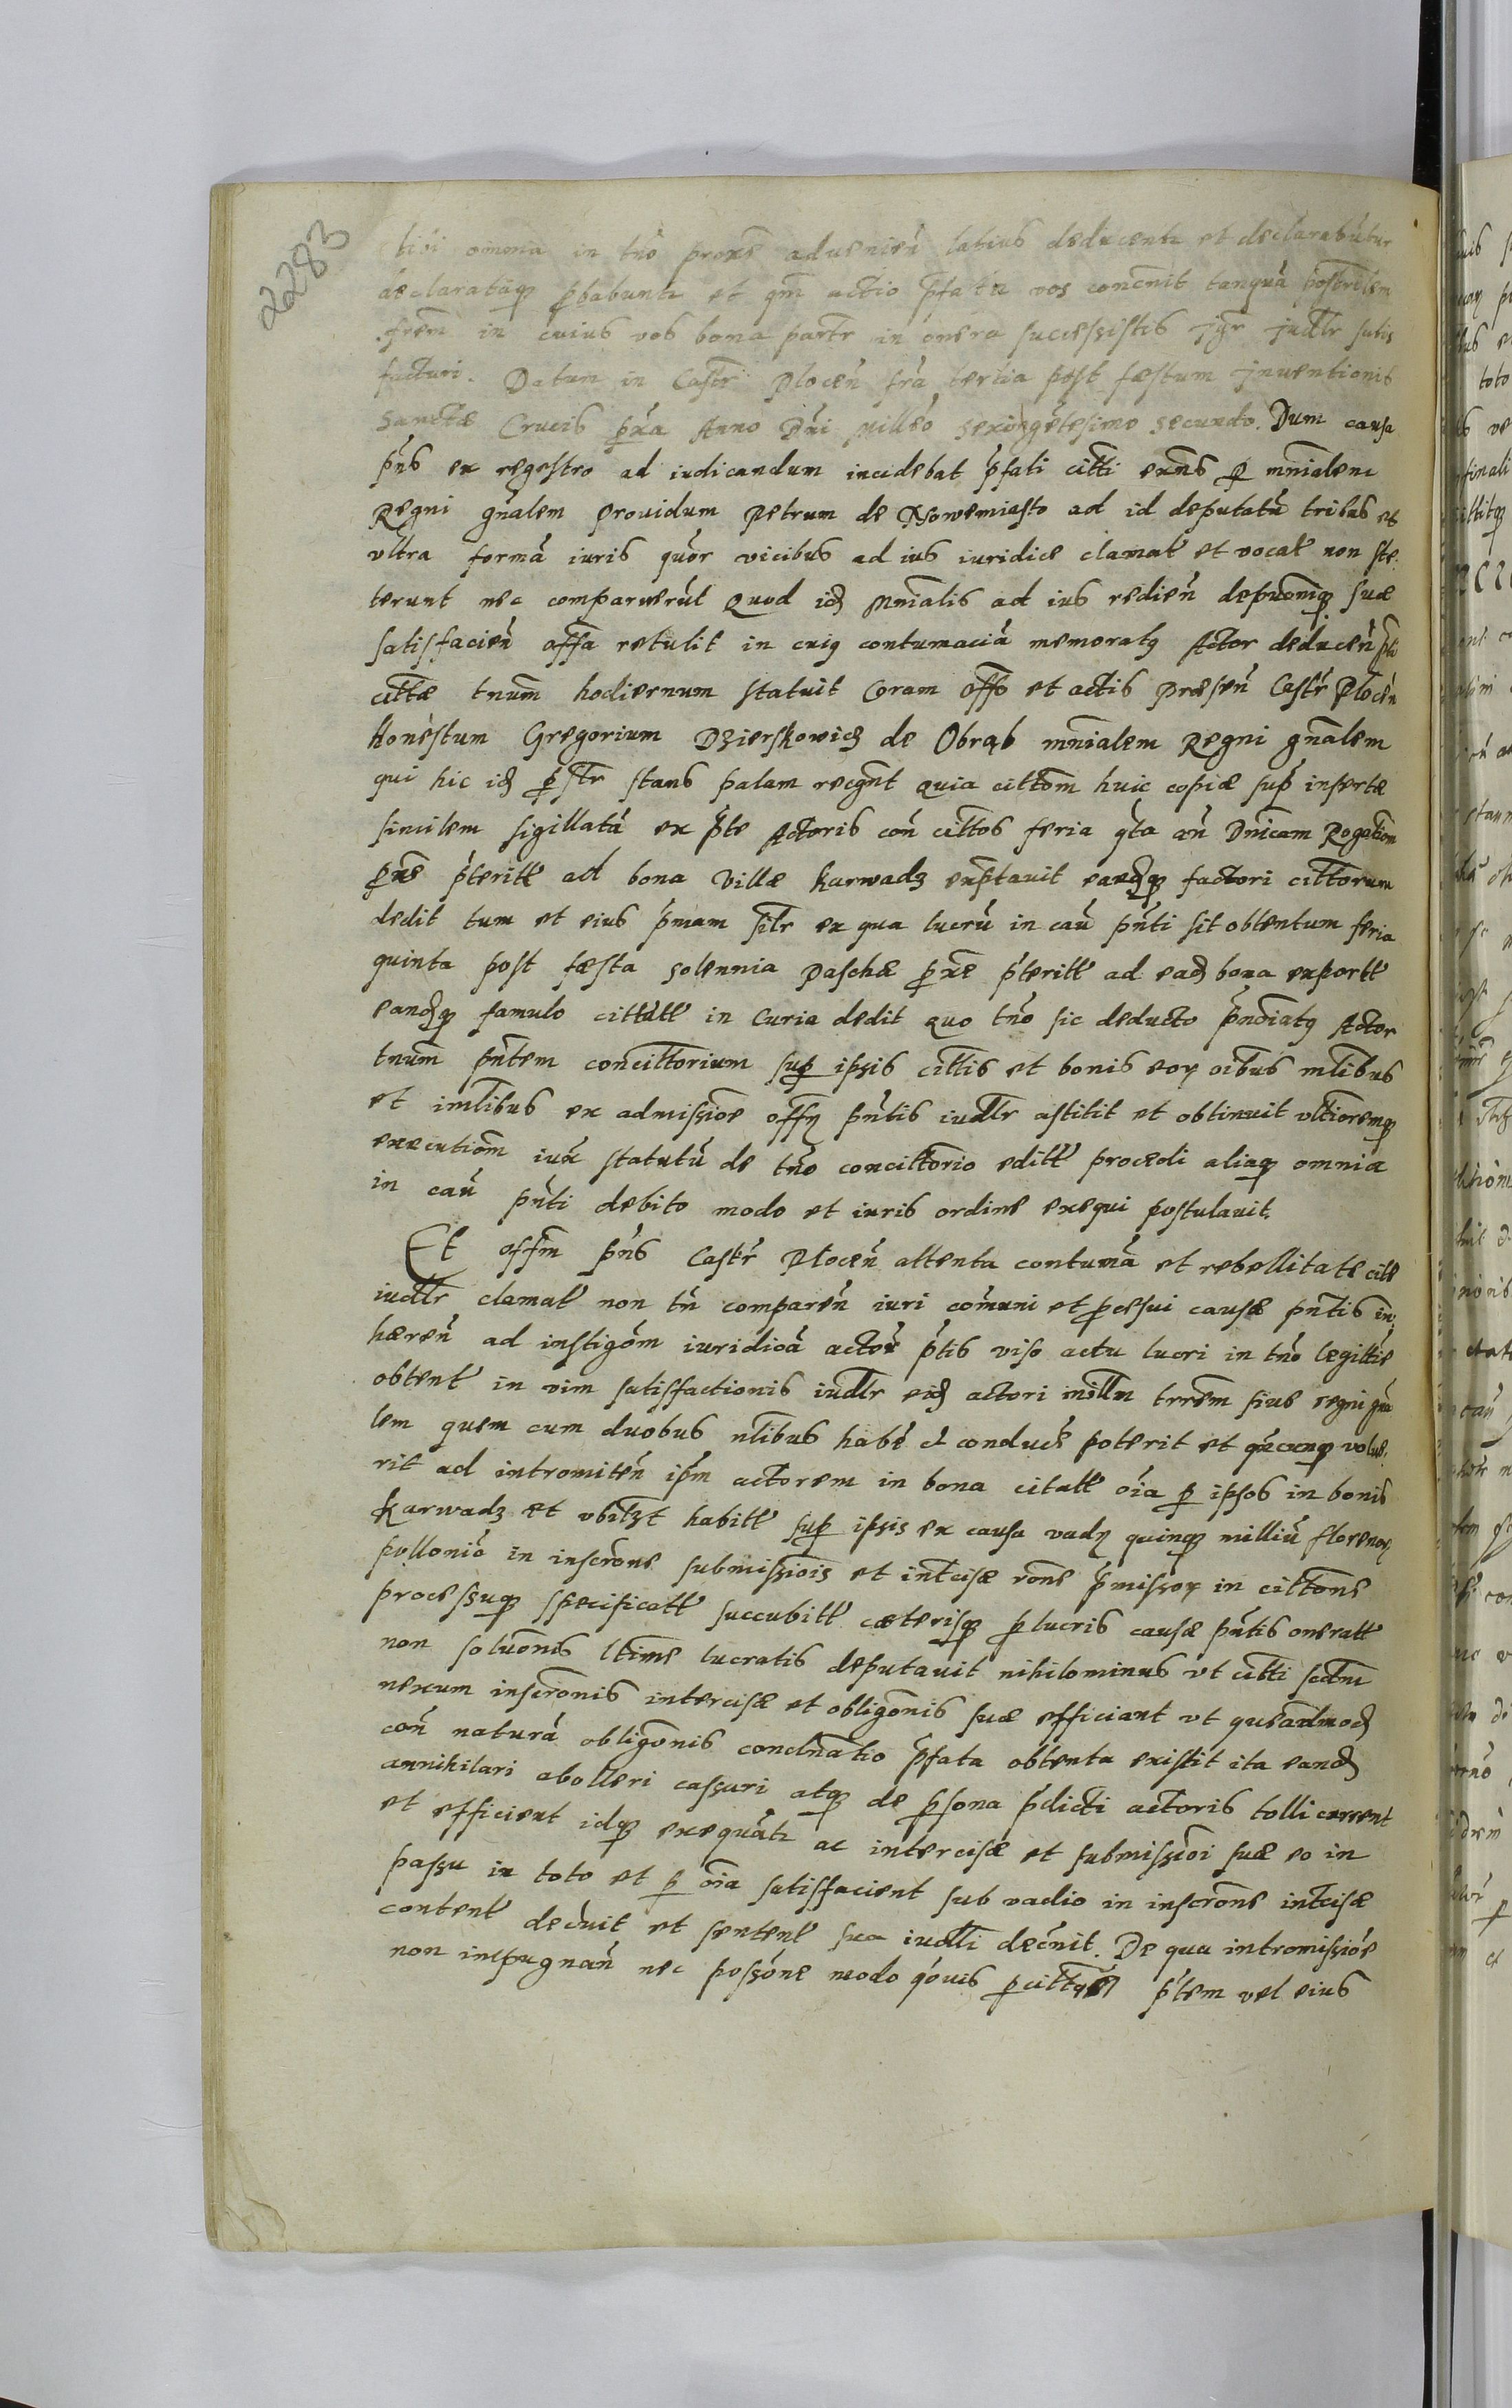 2283
tivi omnia in tno proxe advenien latius deducentr et declarabuntur
declarataq pbabuntr et qm actio pfata vos concernit tanqua
frem in cuius vos bona partr in onera successistis igr judlr satis
facturi. Datum in Castr Plocen fra tertia post fæstum Inventionis
Sanctæ Crucis pxa Anno Dni Milleo sexingetesimo secundo. Dum causa
pns ex regestro ad iudicandum incidebat pfati citti exns p mnialem
Regni gnalem providum Petrum de Nowemiasto ad id deputatu tribus et
ultra forma iuris quor vicibus ad ius iuridice clamat et vocat non ste:
terunt nec comparuerut Quod idz Mnialis ad ius redien depuoniq suæ
satisfacien affa retulit in cuiq contumacia memoratq Actor deducen pti
cittæ tnum hodiernum statuit Coram offo et actis Præsen Castr Plocen
Honestum Gregorium Dzierskowicz de Obrąb mnialem Regni gnalem
qui hic idz pstr stans palam recgnt quia cittom huic copiæ sup insertæ
similem sigillata ex pte Actoris con cittos feria qta an Dnicam Rogation
pxe pteritt ad bona Villæ Karwadz exptavit eandzq factori cittorum
dedit tum et eius pmam silr ex qua lucru in cau pnti sit obtentum feria
quinta post fæsta solennia Paschæ pxe pteritt ad eadz bona exportt
eandzq famulo cittatt in Curia dedit quo tno sic deducto pnoiatq Actor
tnum pntem concittorium sup ipsis cittis et bonis eor oibus mlibus
et imlibus ex admissioe offy pntis iudlr astitit et obtinuit ultioremq
executiom iux statutu de tno concittorio editt procedi aliaq omnia
in cau pnti debito modo et iuris ordine exequi postulavit.
Et offm pns Castr Plocen attenta contuma et rebellitate citt
iudlr clamat non tn comparen iuri comuni et pcessui causæ pntis in:
hæren ad instigom iuridica actor ptis viso actu lucri in tno legittie
obtent in vim satisfactionis iudlr eidz actori millm trrem sive regni gna
lem quem cum duobus nlibus habe et conduce poterit et qncunq volue:
rit ad intromiten ipm actorem in bona citatt oia p ipsos in bonis
Karwadz et ubilzt habitt sup ipsis ex causa vady quinq milliu florenor
polloniô in inscrone submissiois et intcisæ rone pmissor in cittone
processuq specificatt succubitt cæterisq p lucris causæ pntis oneratt
non soluonis ltime lucratis deputavit nihilominus ut citti sctm
nexum inscronis intercisæ et obligonis suæ efficiant ut queadmodz
con natura obligonis condnatio pfata obtenta existit ita eandz
annihilari abolleri cassari atq de psona pdicti actoris tolli current
et efficient idq exequatr ac intercisæ et submissioi suæ eo in
passu in toto et p oia satisfacient sub vadio in inscrone intcisæ
content decrevit et sentent sua iudli decrevit. De qua intromissioe
non inpugnan nec possone modo qovis p cittor ptem vel eius